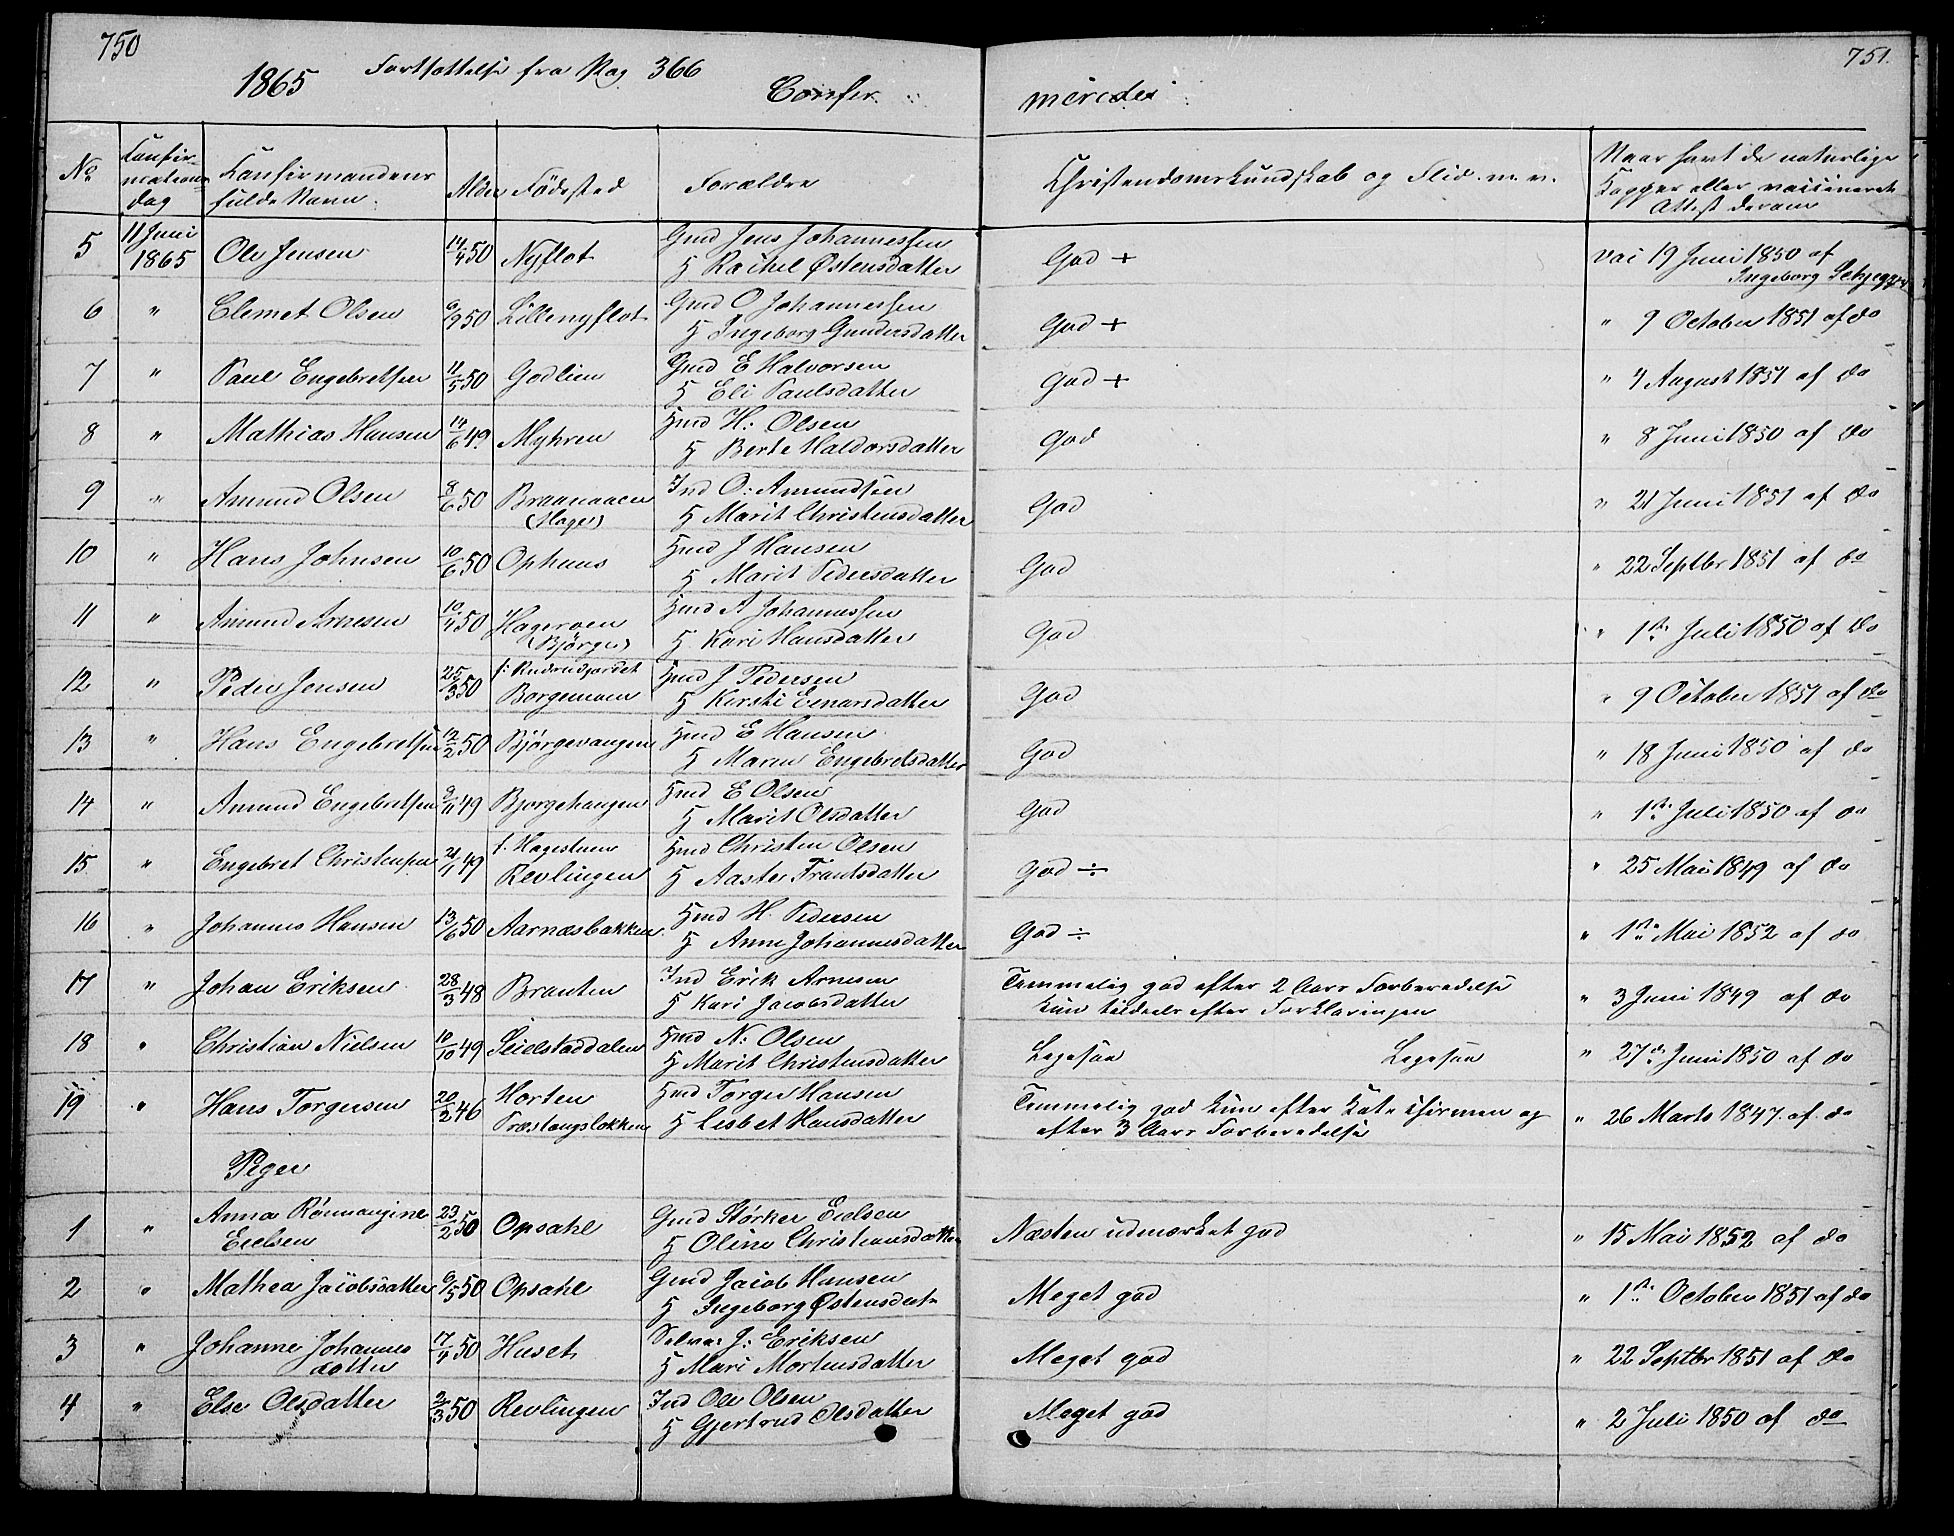 750
751.
1865 Fortsættelse fra Pag 366
Confir
merede
No
Confir-
mations
dag
Confirmandens
fulde Navn.
Alder
Födested
Forældre
Christendomskundskab og Flid. m. v.
Naar havt de naturlige
Kopper eller vaccineret
Attest derom
5 11 Juni 1865 Ole Jensen 14/4 50 Nyflot Gmd Jens Johannessen
H Rachel Østensdatter God + vac 19 Juni 1850 af
Ingeborg
6 " Clemet Olsen 6/9 50 Lillenyflot Gmd O Johannessen
H Ingeborg Gundersdatter God + " 9 October 1851 af do
7 " Paul Engebretsen 11/5 50 Godlien Gmd E Halvorsen
H Eli Paulsdatter God + " 4 August 1851 af do
8 " Mathias Hansen 14/6 49 Myhren Hmd H: Olsen
H Berte Haldorsdatter God " 8 Juni 1850 af do
9 " Amund Olsen 8/6 50 Braanaaen
(Hage) Ind O: Amundsen
H Marit Christensdatter God " 21 Juni 1851 af do
10 " Hans Johnsen 10/6 50 Ophuus Hmd J Hansen
H Marit Pedersdatter God " 22 Septbr 1851 af do
11 " Amund Arnesen 10/4 50 Hageroen
(Bjørge) Hmd A Johannessen
H Kari Hansdatter God " 1ste Juli 1850 af do
12 " Peder Jensen 25/3 50 f: Rudrudjordet
Borgemoen Hmd J Pedersen
H Kersti Einarsdatter God " 9 October 1851 af do
13 " Hans Engebretsen 12/2 50 Bjørgevangen Hmd E Hansen
H Maren Engebretsdatter God " 18 Juni 1850 af do
14 " Amund Engebretsen 9/11 49 Bjorgehaugen Hmd E Olsen
H Marit Olsdatter God " 1ste Juli 1850 af do
15 " Engebret Christensen 21/1 49 f. Hagestuen
Revlingen Hmd Christen Olsen
H Aaste Frantsdatter God ÷ " 25 Mai 1849 af do
16 " Johannes Hansen 13/6 50 Aarnæsbakken Hmd H. Pedersen
H Anne Johannesdatter God ÷ " 1ste Mai 1852 af do
17 " Johan Eriksen 28/3 48 Braaten Ind Erik Arnesen
H Kari Jacobsdatter Temmelig god efter 2 Aars Forberedelse
kun tildeels efter Forklaringen " 3 Juni 1849 af do
18 " Christian Nielsen 10/10 49 Seielstaddalen Hmd N: Olsen
H Marit Christensdatter Ligesaa Ligesaa " 27de Juni 1850 af do
19 " Hans Torgersen 20/2 46 Horten
Præstangsløkken Hmd Torger Hansen
H Lisbet Hansdatter Temmelig god kun efter Katechismen og
efter 3 Aars Forberedelse " 26 Marts 1847 af do
Piger
1 " Anna Rønnaugine
Eielsen 23/2 50 Opsahl Gmd Størker Eielsen
H Oline Christiansdatter Næsten udmærket god " 15 Mai 1852 af do
2 " Mathea Jacobsdatter 6/5 50 Opsahl Gmd Jacob Hansen
H Ingeborg Østensdatr Meget god " 1ste October 1851 af do
3 " Johanne Johannes
datter 17/4 50 Huset Selve: J: Eriksen
H Mari Mortensdatter Meget god " 22 Septbr 1851 af do
4 " Else Olsdatter 2/3 50 Revlingen Ind Ole Olsen
H Gjertrud Olsdatter Meget god " 2 Juli 1850 af do